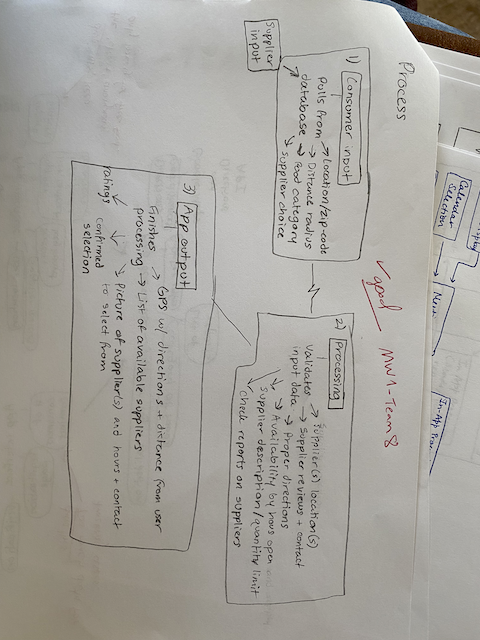 Process
Supplier
input
1) Consumer input
Pulls from → Location/zip-code
database → Distance radius
→ Food category
Supplier choice
✓ good
MW1-Team 8
2) Processing
Validates → Supplier(s) location(s)
input data → Supplier reviews + contact
→ Proper directions
→ Availability by hours open
Supplier description/quantity limit
Check reports on suppliers
3) App output
Finishes → GPS w/ directions + distance from user
processing → List of available suppliers
→ Picture of supplier(s) and hours + contact
ratings
confirmed
selection
to select from
Calendar
Selection
New
In-App